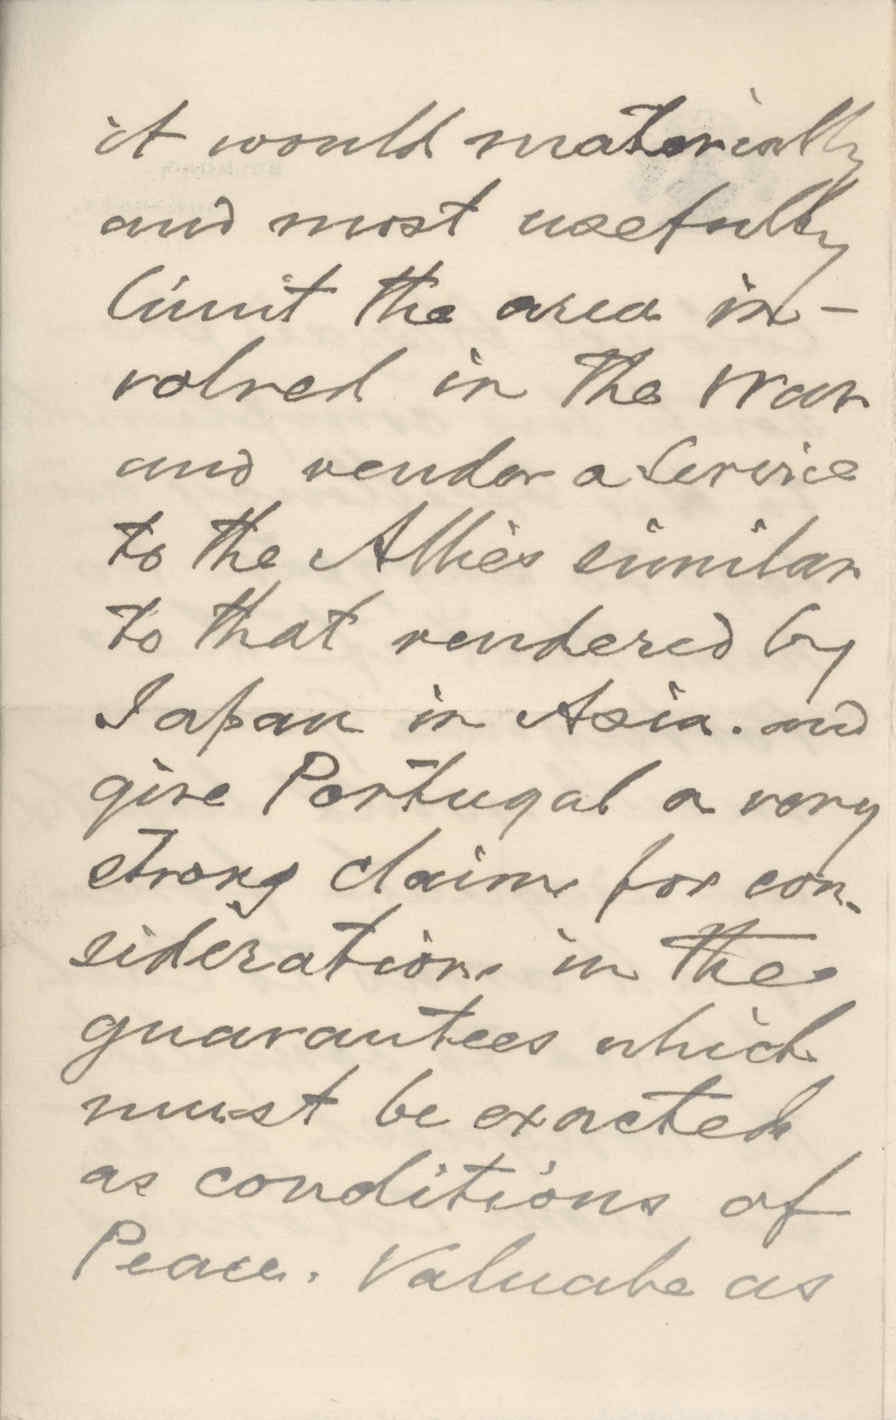 it would materially
and most usefully
limit the area in-
volved in the War
and render a Service
to the Allies similar
to that rendered by
Japan in Asia. and
give Portugal a very
strong claim for con-
sideration in the
guarantees which
must be exacted
as conditions of
Peace. Valuabe as